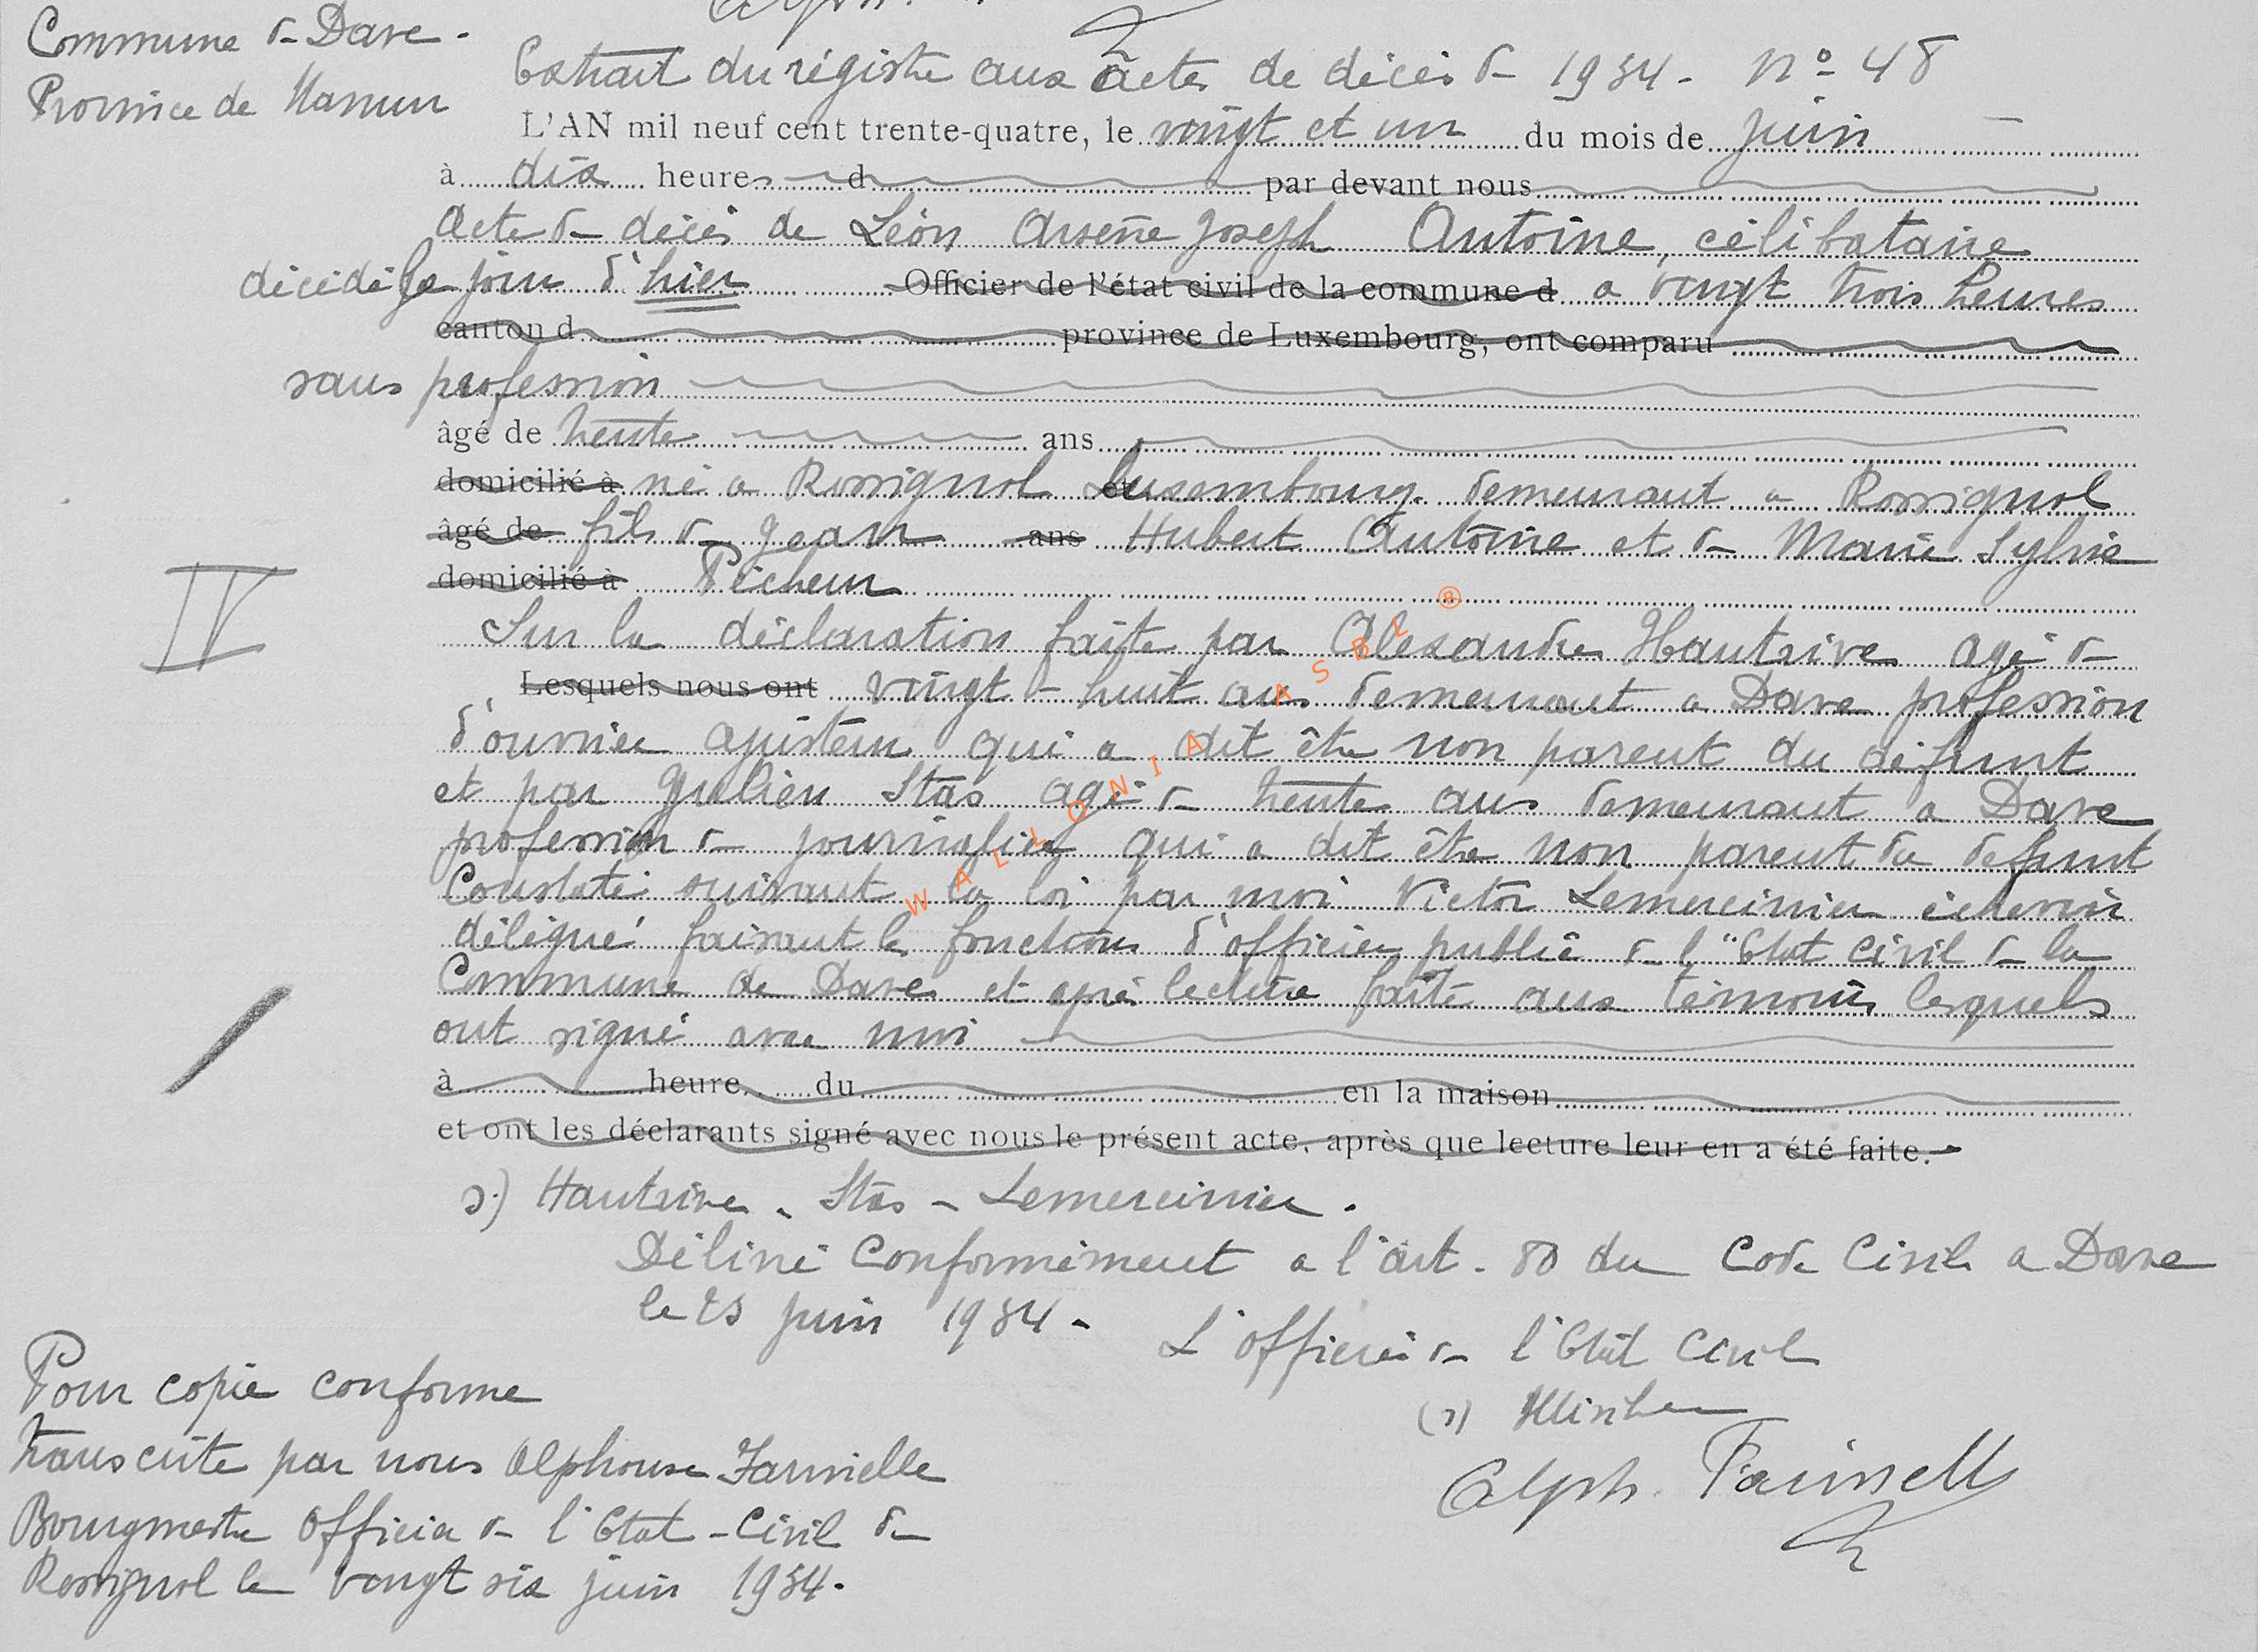 Commune de Dave -
Province de Namur
Extrait du régistre aux actes de décès de 1934 - N° 48
L'AN mil neuf cent trente-quatre, le vingt et un du mois de juin
à dix heures d par devant nous
Acte de décès de Léon Arsène Joseph Antoine, célibataire
décédé le jour d'hier Officier de l'état civil de la commune d a vingt trois heures
canton d province de Luxembourg, ont comparu
sans profession
âgé de trente ans
domicilié à né a Rossignol Luxembourg demeurant a Rossignol
âgé de fils de Jean ans Hubert Antoine et de Marie Sylvie
domicilié à Pècheur
Sur la déclaration faite par Alexandre Hautrive agé de
Lesquels nous ont vingt-huit ans demeurant a Dave profession
d'ouvrier ajusteur qui a dit être non parent du défunt
et par Julien Stas agé de trente ans demeurant a Dave
profession de journalier qui a dit être non parent du defunt
Constaté suivant la loi par moi Victor Lemercinier échevin
délégué faisant les fonctions d'officier public de l'Etat civil de la
Commune de Dave et après lecture faite aux témoins lesquels
ont signé avec moi
à heure du en la maison
et ont les déclarants signé avec nous le présent acte, après que lecture leur en a été faite.
s) Hautrive - Stas - Lemercinier.
Délivré Conformément a l'art. 80 du Code Civil a Dave
le 23 juin 1934 -
L'officier de l'Etat Civil
(s)
Alph. Farinelle
Pour copie conforme
transcrite par nous Alphonse Farinelle
Bourgmestre officier de l'Etat-Civil de
Rossignol le vingt six juin 1934.
IV
WALLONIA ASBL ®